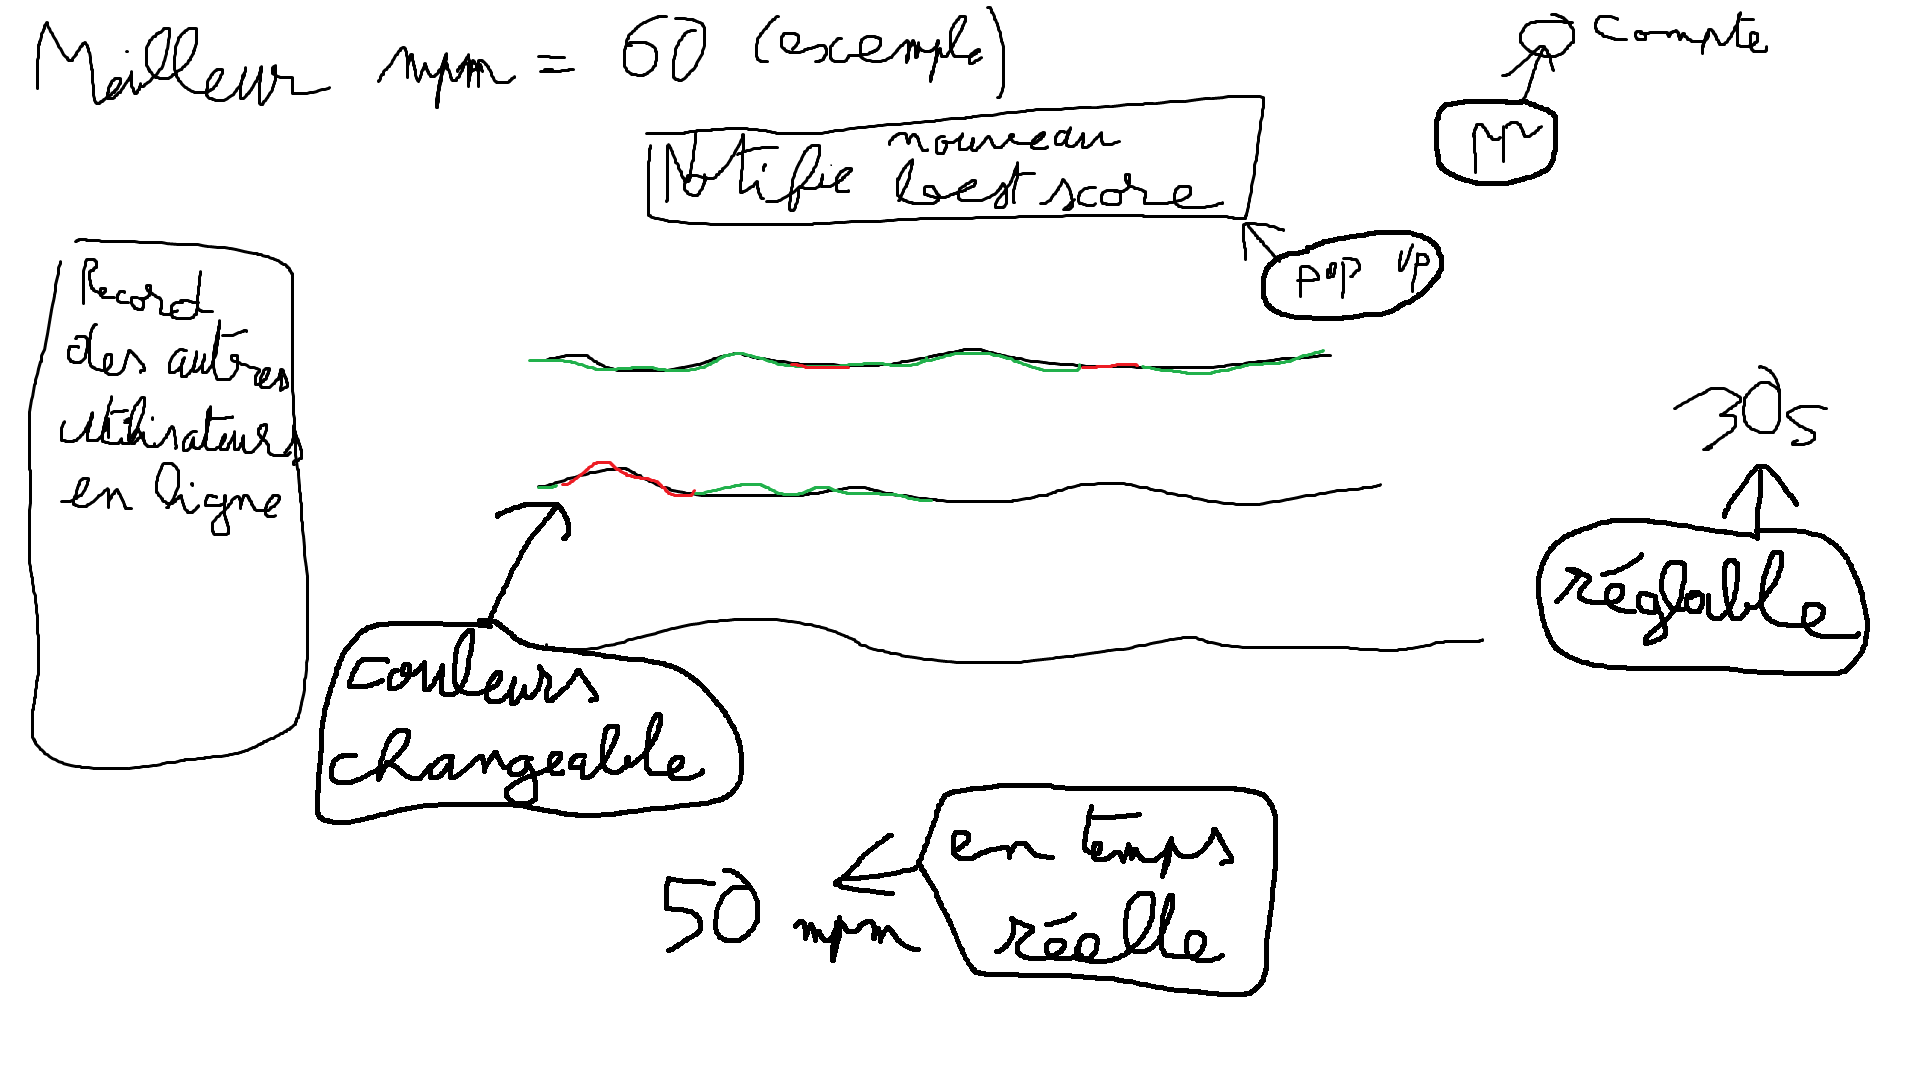 Meilleur mpm = 60 (exemple)
Compte
pp
Notifie nouveau best score
pop up
Record
des autres
utilisateurs
en ligne
30s
réglable
couleurs
changeable
en temps
réelle
50 mpm